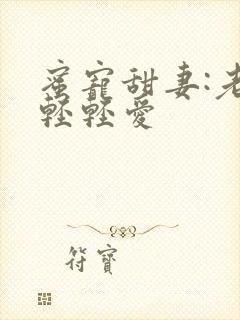 蜜寵甜妻:老
輕輕愛
符寶